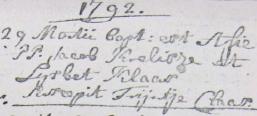 1792.
29 Martii bapt: est Asie
PP. Jacob Kelisze et
Lysbet Klaas
Suscepit Trijntje Claas.